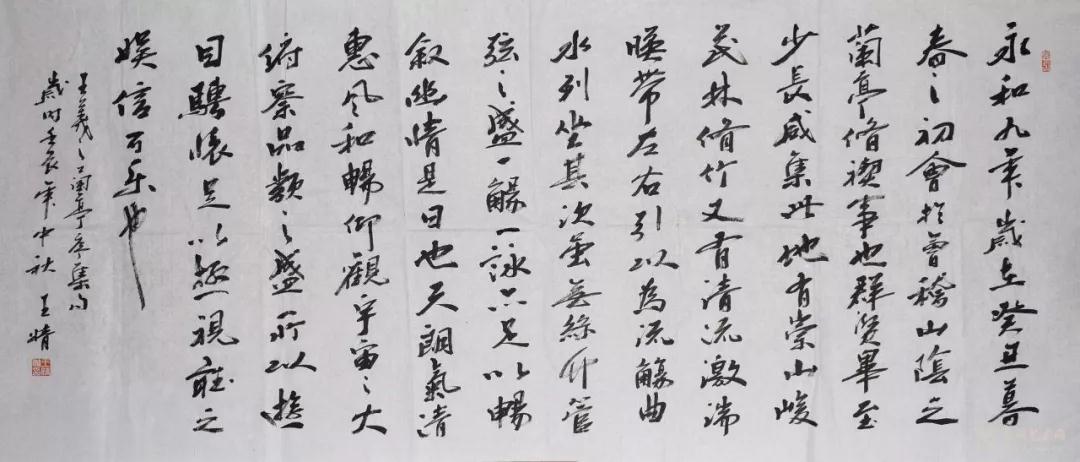 永和九年歲在癸丑暮
春之初會於會稽山陰之
蘭亭脩禊事也群賢畢至
少長咸集此地有崇山峻
茂林脩竹又有清流激湍
暎帶左右引以為流觴曲
水列坐其次雖無絲竹管
弦之盛一觴一詠亦足以暢
敘幽情是日也天朗氣清
惠風和暢仰觀宇宙之大
俯察品類之盛所以遊
目騁懷足以極視聽之
娛信可樂也
王羲之蘭亭序集句
歲時壬辰年中秋 王